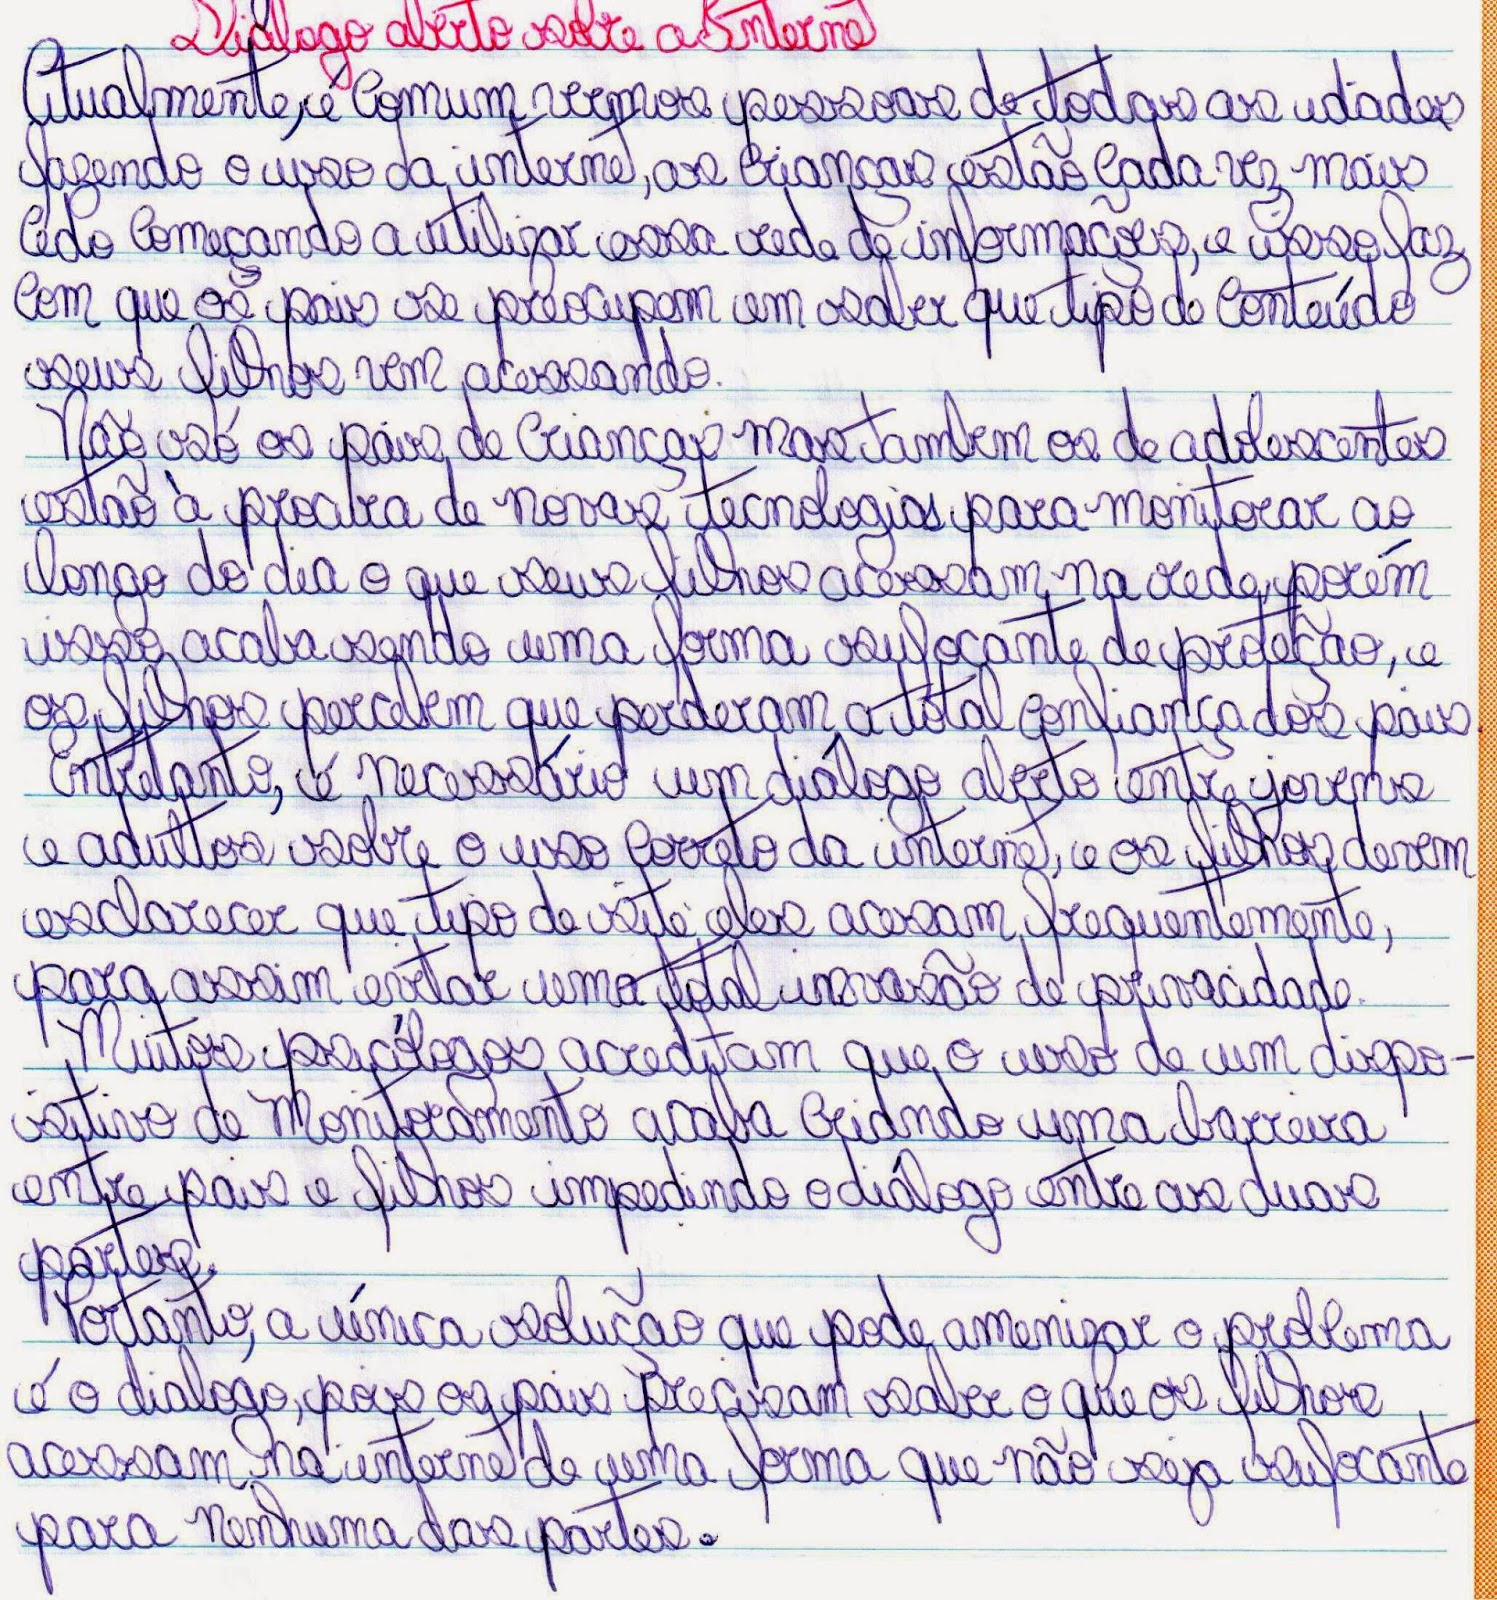 Diálogo aberto sobre a Internet
Atualmente, é comum vermos pessoas de todas as idades
fazendo o uso da internet, as crianças estão cada vez mais
cedo começando a utilizar essa rede de informações, e isso faz
com que os pais se preocupem em saber que tipo de conteúdo
seus filhos vem acessando.
Não só os pais de crianças mas também os de adolescentes
estão à procura de novas tecnologias para monitorar ao
longo do dia o que seus filhos acessam na rede, porém
isso acaba sendo uma forma sufocante de proteção, e
os filhos percebem que perderam a total confiança dos pais.
Entretanto, é necessário um diálogo aberto entre jovens
e adultos sobre o uso correto da internet, e os filhos devem
esclarecer que tipo de site eles acessam frequentemente,
para assim evitar uma total invasão de privacidade.
Muitos psicólogos acreditam que o uso de um dispo-
sitivo de monitoramento acaba criando uma barreira
entre pais e filhos impedindo o diálogo entre as duas
partes.
Portanto, a única solução que pode amenizar o problema
é o dialogo, pois os pais precisam saber o que os filhos
acessam na internet de uma forma que não seja sufocante
para nenhuma das partes.